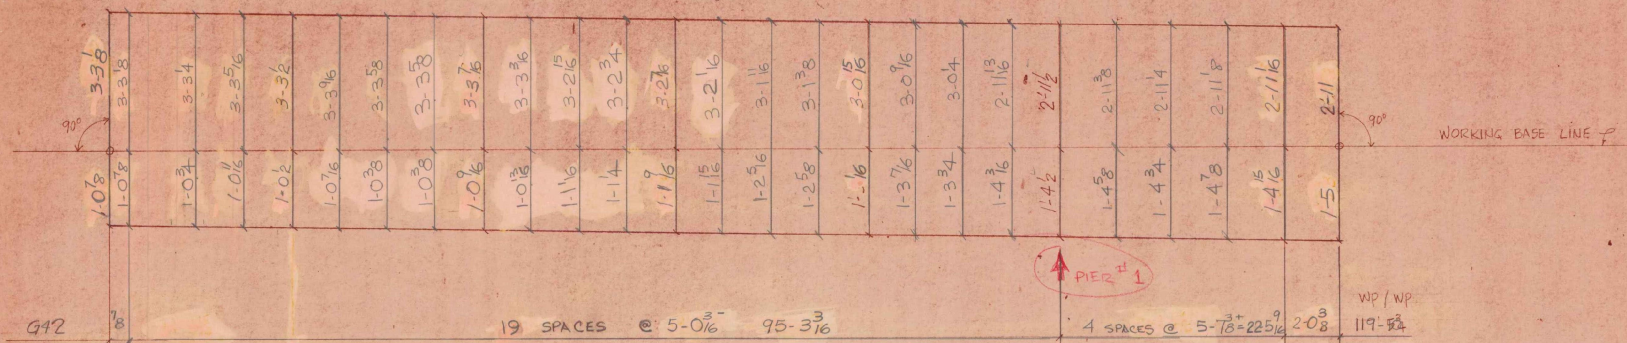 3-3 1/8 3-3 1/8 3-3 1/4 3-3 5/16 3-3 1/2 3-3 9/16 3-3 5/8 3-3 5/8 3-3 7/16 3-3 3/16 3-2 15/16 3-2 3/4 3-2 7/16 3-2 1/16 3-1 11/16 3-1 3/8 3-0 15/16 3-0 9/16 3-0 1/4 2-11 13/16 2-11 1/2 2-11 3/8 2-11 1/4 2-11 1/8 2-11 1/16 2-11
90° 90°
WORKING BASE LINE
1-0 7/8 1-0 7/8 1-0 3/4 1-0 11/16 1-0 1/2 1-0 7/16 1-0 3/8 1-0 3/8 1-0 9/16 1-0 13/16 1-1 1/16 1-1 1/4 1-1 9/16 1-1 15/16 1-2 5/16 1-2 5/8 1-3 7/16 1-3 3/4 1-4 3/16 1-4 1/2 1-4 5/8 1-4 3/4 1-4 7/8 1-4 15/16 1-5
PIER #1
WP/WP
G42 7/8 19 SPACES @ 5-0 3/16- 95-3 3/16 4 SPACES @ 5-7 3/8+=22 5 9/16 2-0 3/8